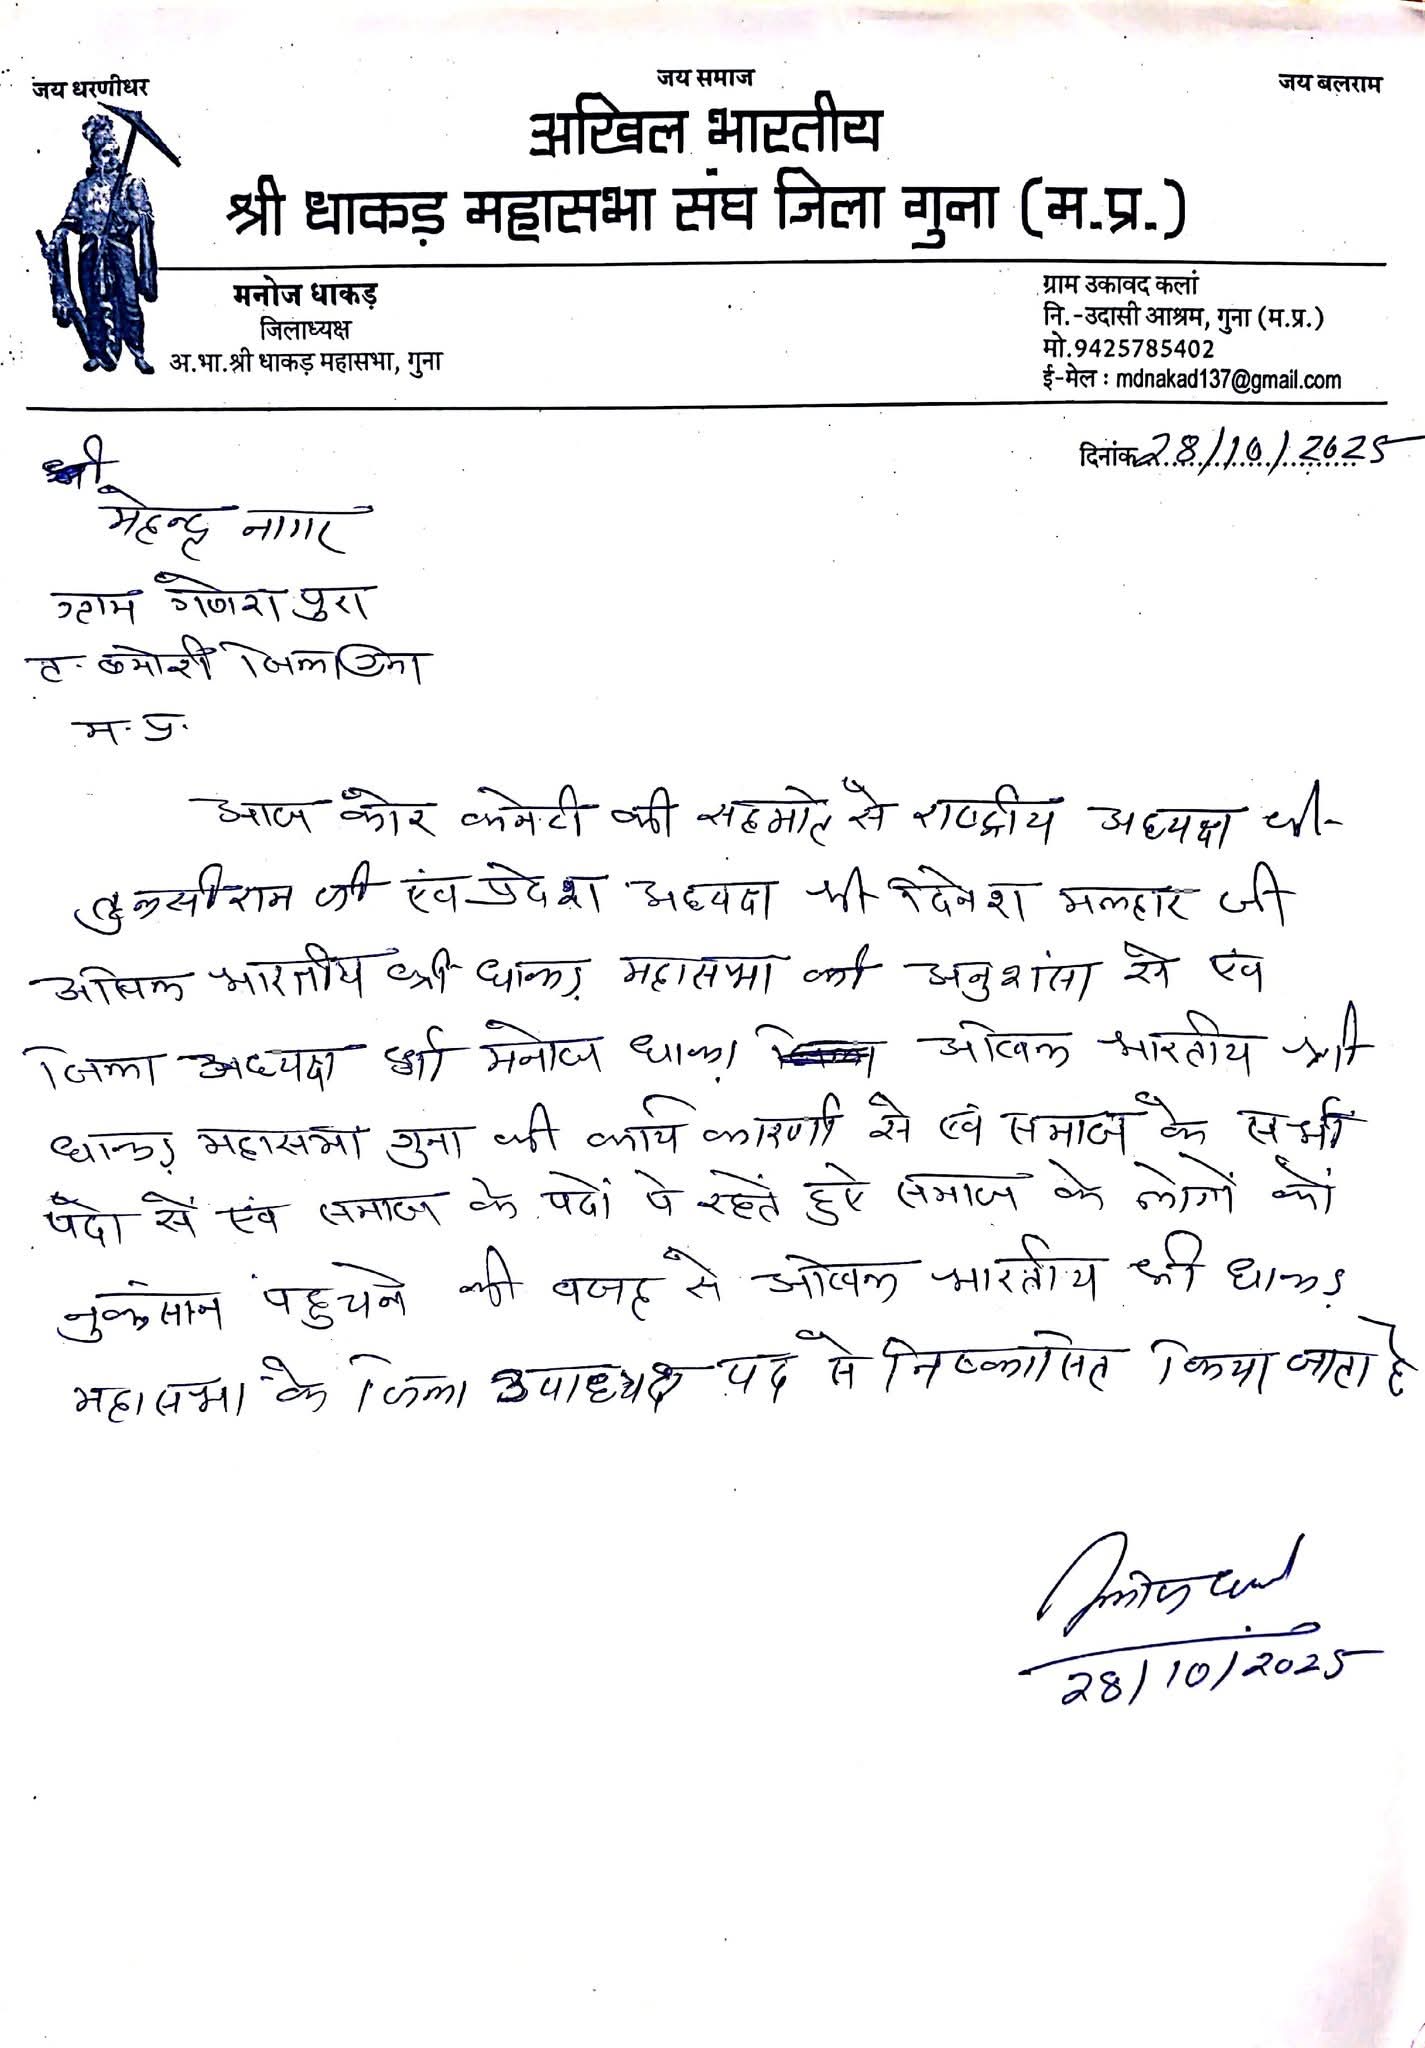 जय धरणीधर
जय समाज
जय बलराम
अखिल भारतीय
श्री धाकड़ महासभा संघ जिला गुना (म.प्र.)
मनोज धाकड़
जिलाध्यक्ष
अ.भा.श्री धाकड़ महासभा, गुना
ग्राम उकावद कलां
नि.-उदासी आश्रम, गुना (म.प्र.)
मो.9425785402
ई-मेल : mdnakad137@gmail.com
दिनांक 28/10/2025
श्री
महेन्द्र नागर
ग्राम गणेशपुरा
त. बमोरी जिला गुना
म. प्र.
आज कोर कमेटी की सहमति से राष्ट्रीय अध्यक्ष श्री
तुलसीराम जी एंव प्रदेश अध्यक्ष श्री दिनेश मलहार जी
अखिल भारतीय श्री धाकड़ महासभा की अनुशंसा से एंव
जिला अध्यक्ष श्री मनोज धाकड़ अखिल भारतीय श्री
धाकड़ महासभा गुना की कार्य कारणी से एवं समाज के सभी
पदो से एंव समाज के पदों पे रहतें हुए समाज के लोगों को
नुकंसान पंहुचने की वजह से अखिल भारतीय श्री धाकड़
महासभा के जिला उपाध्यक्ष पद से निष्कासित किया जाता है
28/10/2025